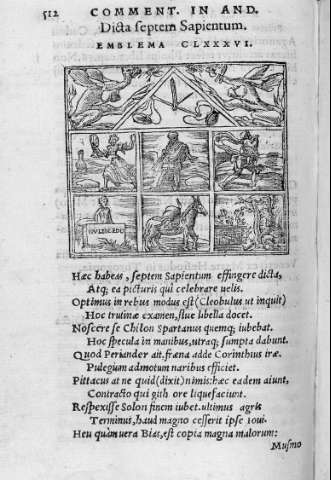 512 COMMENT. IN AND.
Dicta septem Sapientum.
EMBLEMA CLXXXVI.
NVLLI CEDO
Hæc habeas, septem Sapientum effingere dicta,
Atq; ea picturis qui celebrare uelis.
Optimus in rebus modus est (Cleobulus ut inquit)
Hoc trutinæ examen, siue libella docet.
Noscere se Chilon Spartanus quemq; iubebat.
Hoc specula in manibus, utraq; sumpta dabunt.
Quod Periander ait. fræna adde Corinthius iræ.
Pulegium admotum naribus efficiet.
Pittacus at ne quid (dixit) nimis: hæc eadem aiunt,
Contracto qui gith ore liquefaciunt.
Respexisse Solon finem iubet. ultimus agris
Terminus, haud magno cesserit ipse Ioui.
Heu quàm uera Bias, est copia magna malorum:
Musmo